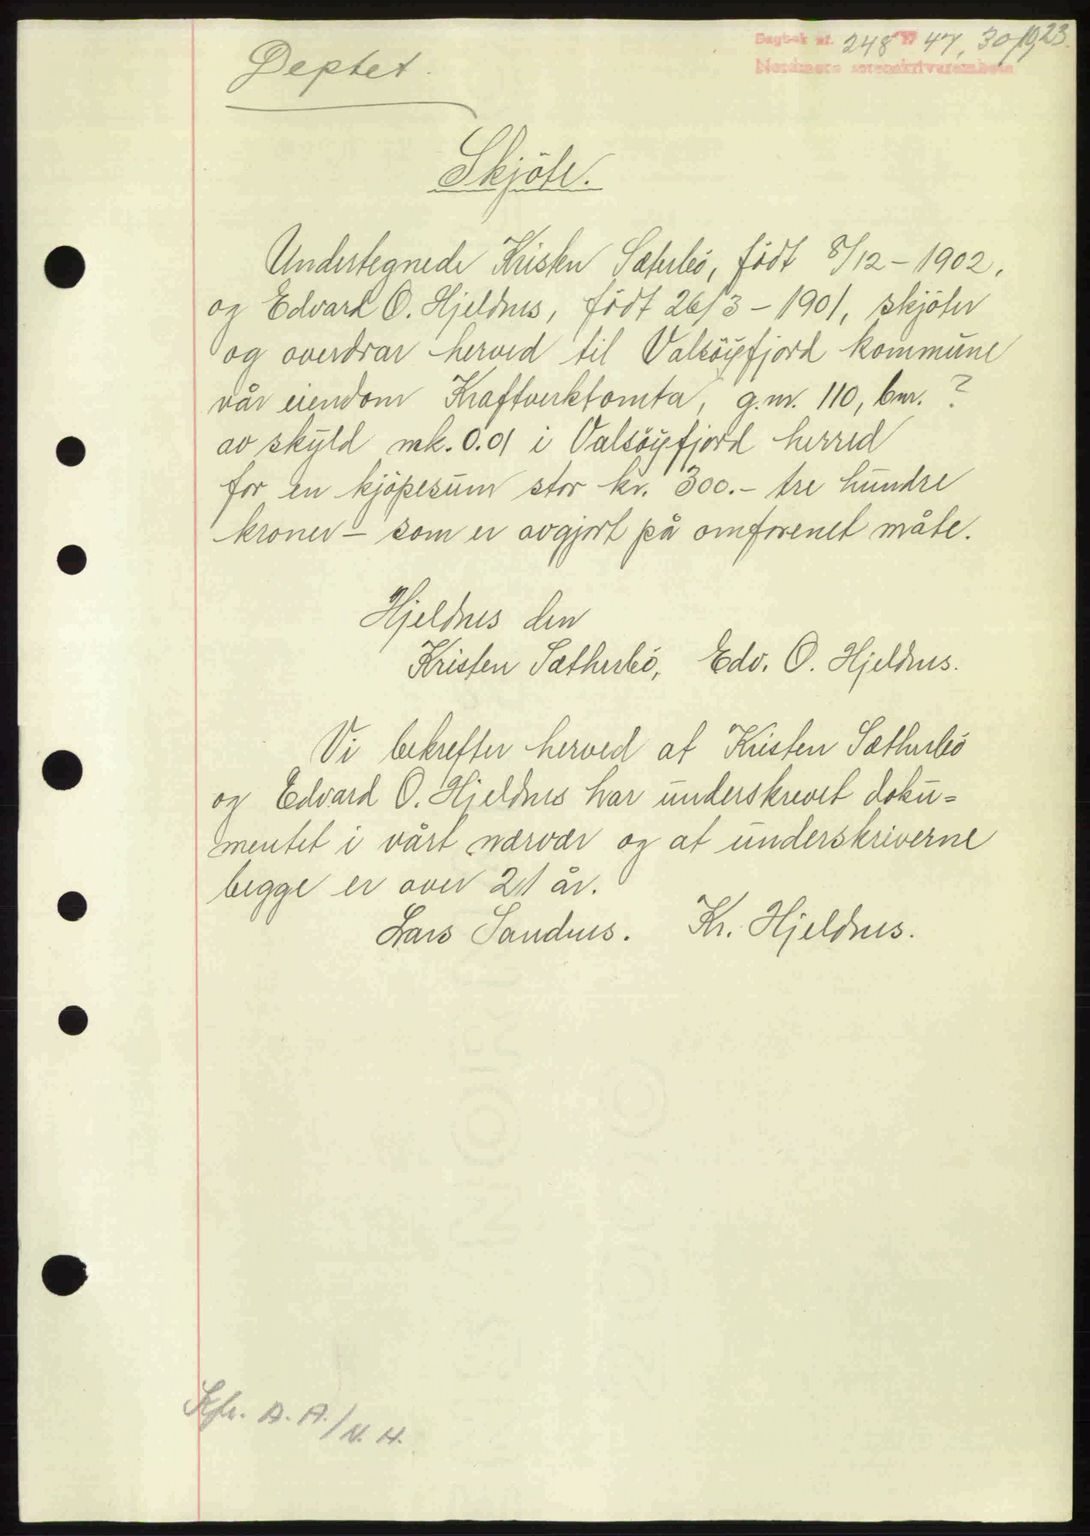 Dagbok nr. 2487 47, 30/10, 23.
Nordmøre sorenskriverembete
Deptet.
Skjöte.
Undertegnede Kristen Sæterbö, födt 8/12 - 1902,
og Edvard O. Hjeldnes, födt 26/3 - 1901, skjöter
og overdrar herved til Valsöyfjord kommune
vår eiendom Kraftverktomta, g.nr. 110, bnr. ?
av skyld mk. 0.01 i Valsöyfjord herred
for en kjöpesum stor kr. 300.- tre hundre
kroner - som er avgjort på omforenet måte.
Hjeldnes den
Kristen Sætherbö, Edv. O. Hjeldnes.
Vi bekrefter herved at Kristen Sætherbö
og Edvard O. Hjeldnes har underskrevet doku=
mentet i vårt nærvær og at underskriverne
begge er over 21 år.
Lars Sandnes. Kr. Hjeldnes.
Kfr. A. A./N. H.